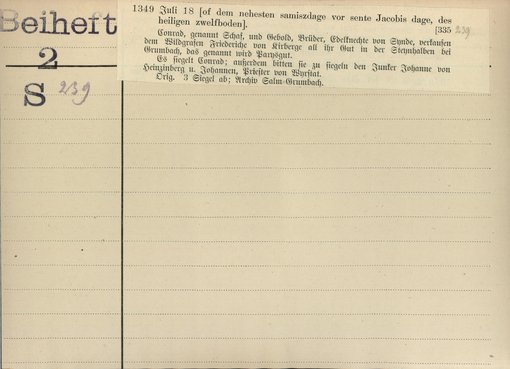 Beiheft
2
S 239
1349 Juli 18 [of dem nehesten samiszdage vor sente Jacobis dage, des
heiligen zwelfboden]. [335 239
Conrad, genannt Schaf, und Gebold, Brüder, Edelknechte von Synde, verkaufen
dem Wildgrafen Friederiche von Kirberge all ihr Gut in der Steynhalben bei
Grumbach, das genannt wird Parysgut.
Es siegelt Conrad; außerdem bitten sie zu siegeln den Junker Johanne von
Heinzinberg u. Johannen, Priester von Wyrstat.
Orig. 3 Siegel ab; Archiv Salm-Grumbach.